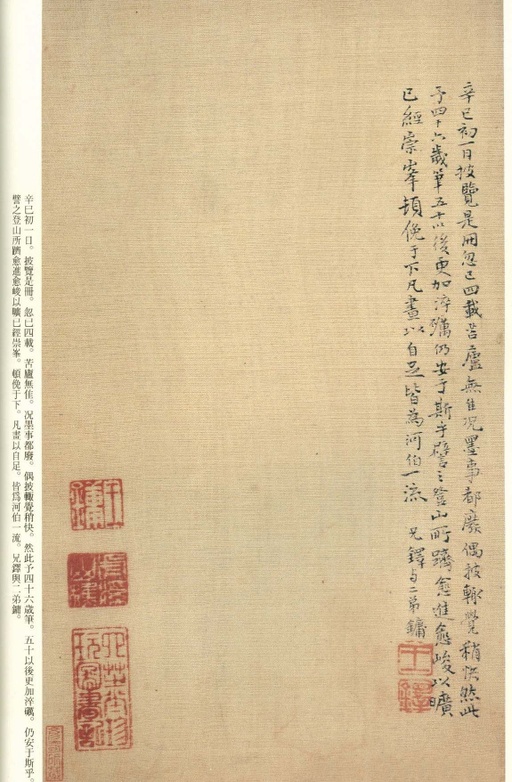 辛巳初一日披覽是冊忽已四載苦廬無隹况墨事都廢偶披輙覺稍快然此
予四十六歲筆五十以後更加淬礪仍安于斯乎譬之登山所躋愈進愈峻以曠
已經崇峯頓俛于下凡畫以自足皆為河伯一流 兄鐸与二弟鏞
王鐸
辛巳初一日。披覽是冊。忽已四載。苦廬無隹。况墨事都廢。偶披輙覺稍快。然此予四十六歲筆。五十以後更加淬礪。仍安于斯乎。
譬之登山所躋愈進愈峻以曠已經崇峯。頓俛于下。凡畫以自足。皆爲河伯一流。兄鐸與二弟鏞。